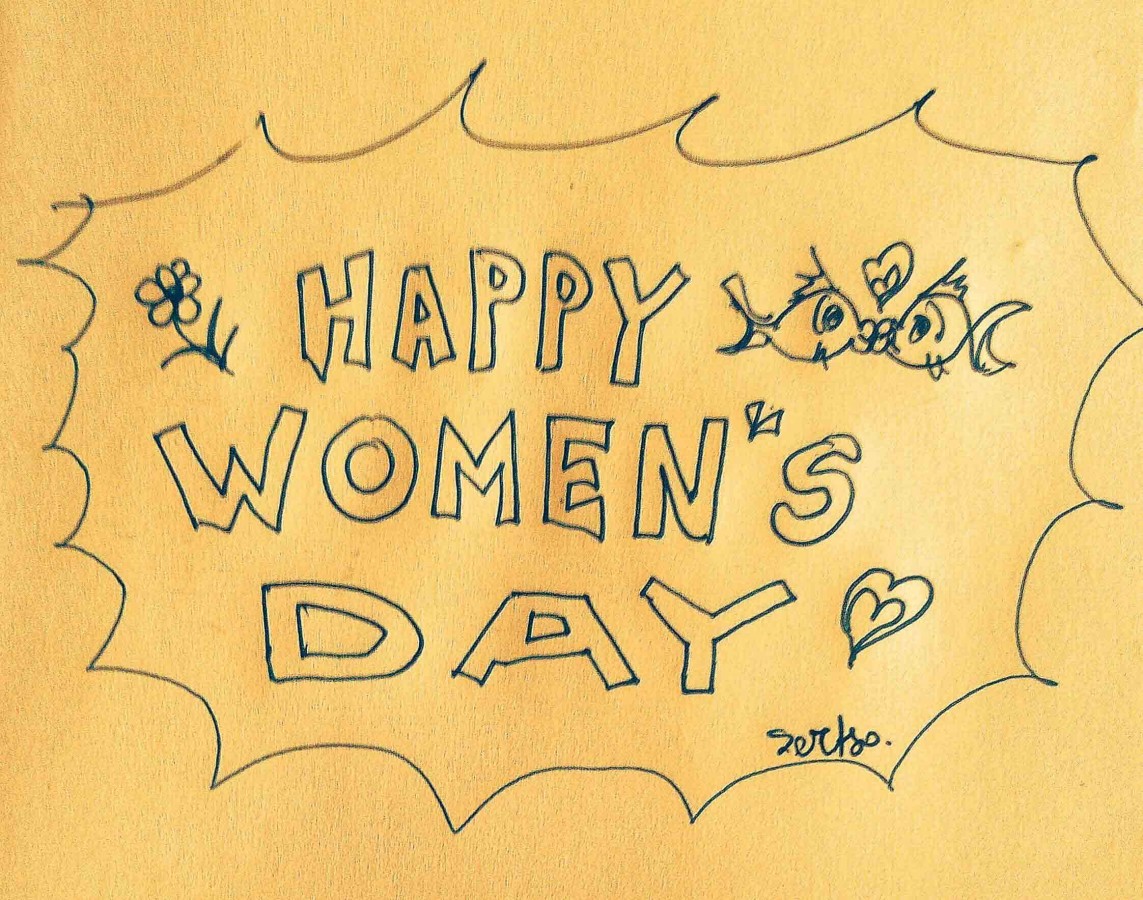 HAPPY
WOMEN'S
DAY
sertso.